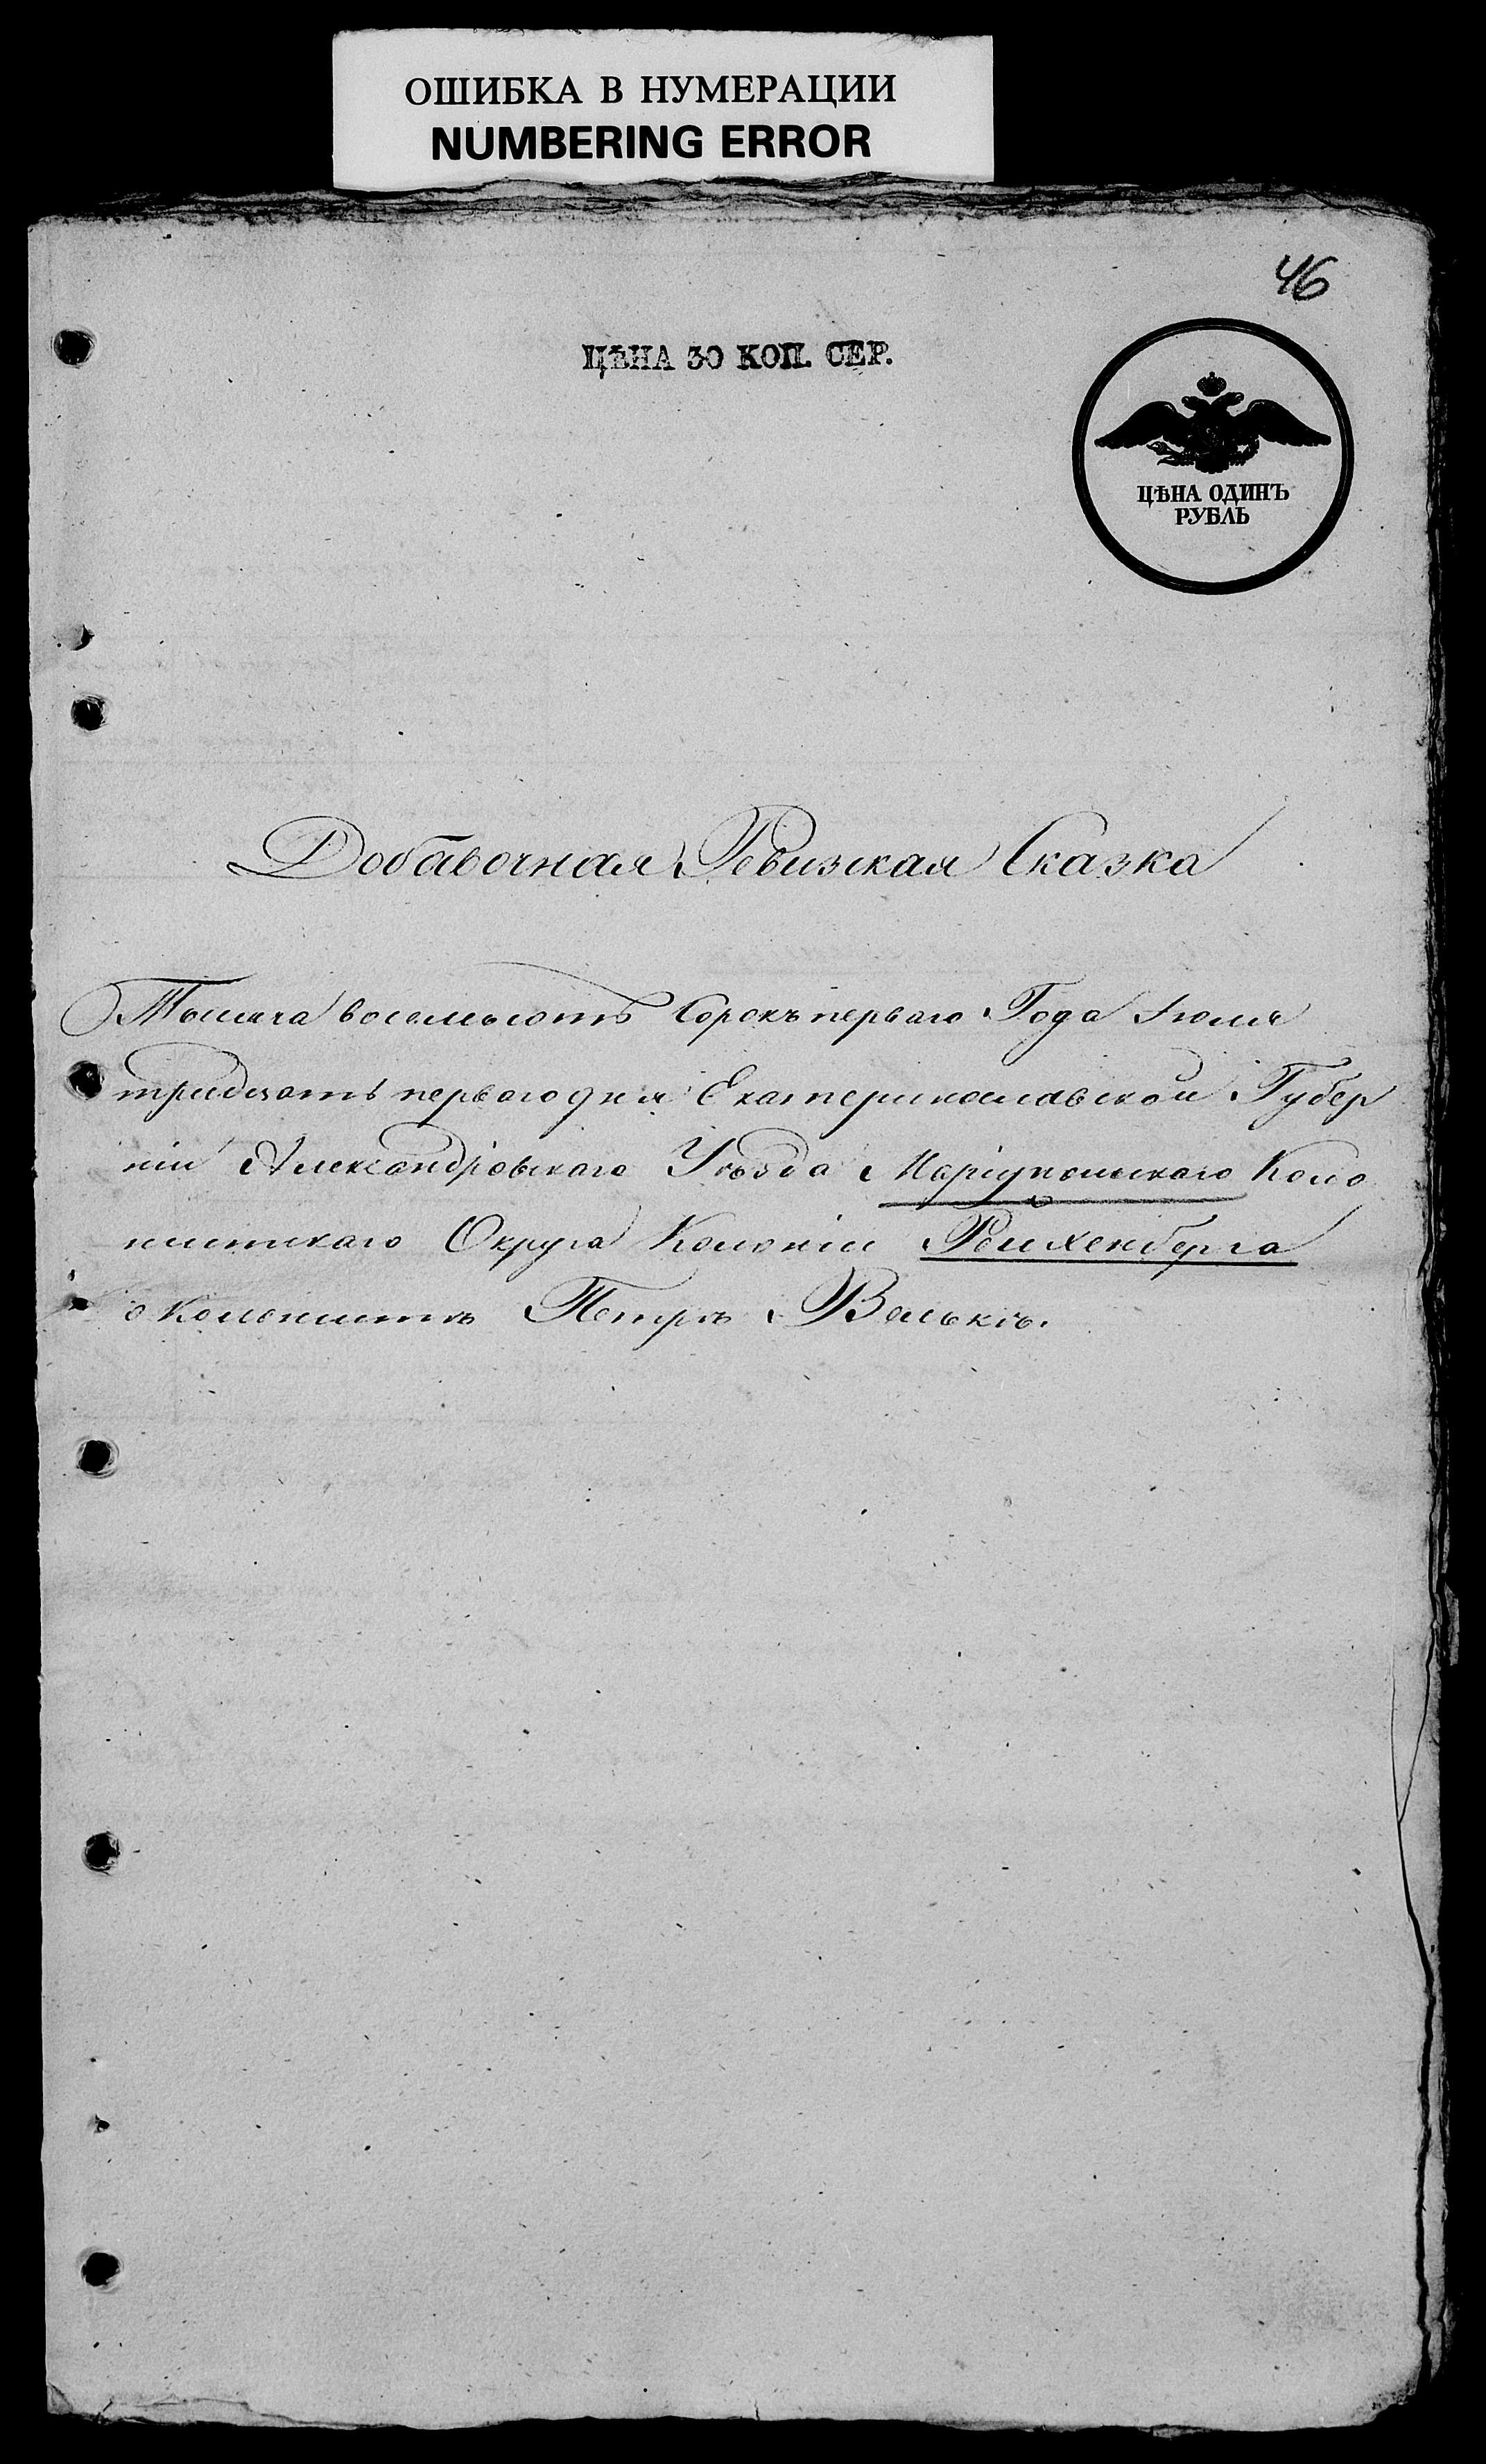 ОШИБКА В НУМЕРАЦИИ
NUMBERING ERROR
46
ЦѢНА 30 КОП. СЕР.
ЦѢНА ОДИНЪ
РУБЛЬ
Добавочная Ревизская Сказка
Тысяча восемьсотъ Сорокъ перваго Года Іюля
тридцать перваго дня Екатеринославской Губер
ніи Александровскаго Уѣзда Маріупольскаго Коло
нистскаго Округа Колоніи Рейхенберга
о Колонистѣ Петрѣ Велькѣ.